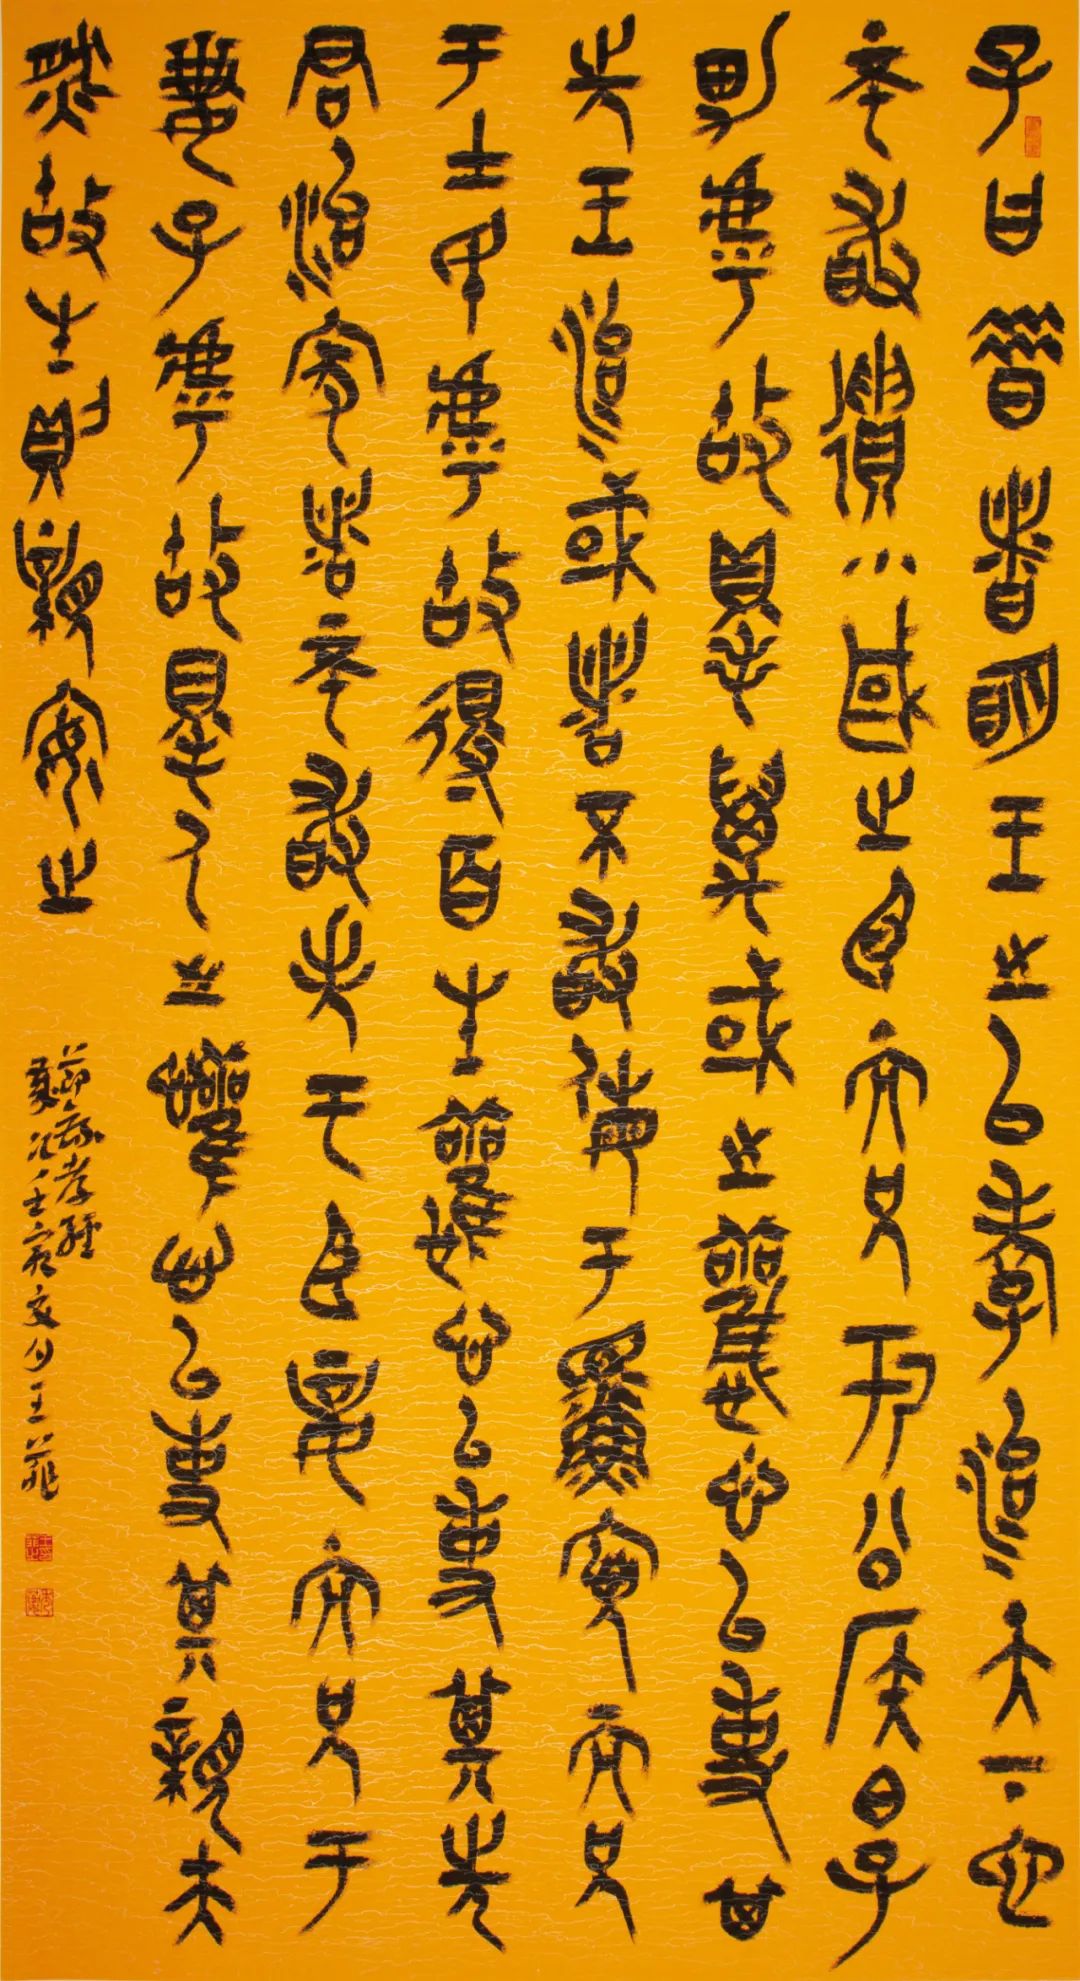 子曰昔者明王之以孝治天下也
不敢遺小國之臣而兄于公侯白子
男虖故得萬或之懽心以事其
先王治或者不敢侮于鰥寡而兄
于士民虖故得百生之懽心以事其先
君治家者不敢失于臣妾而兄于
妻子虖故得人之懽心以事其親夫
然故生則親安之
節錄孝經
歲次壬寅